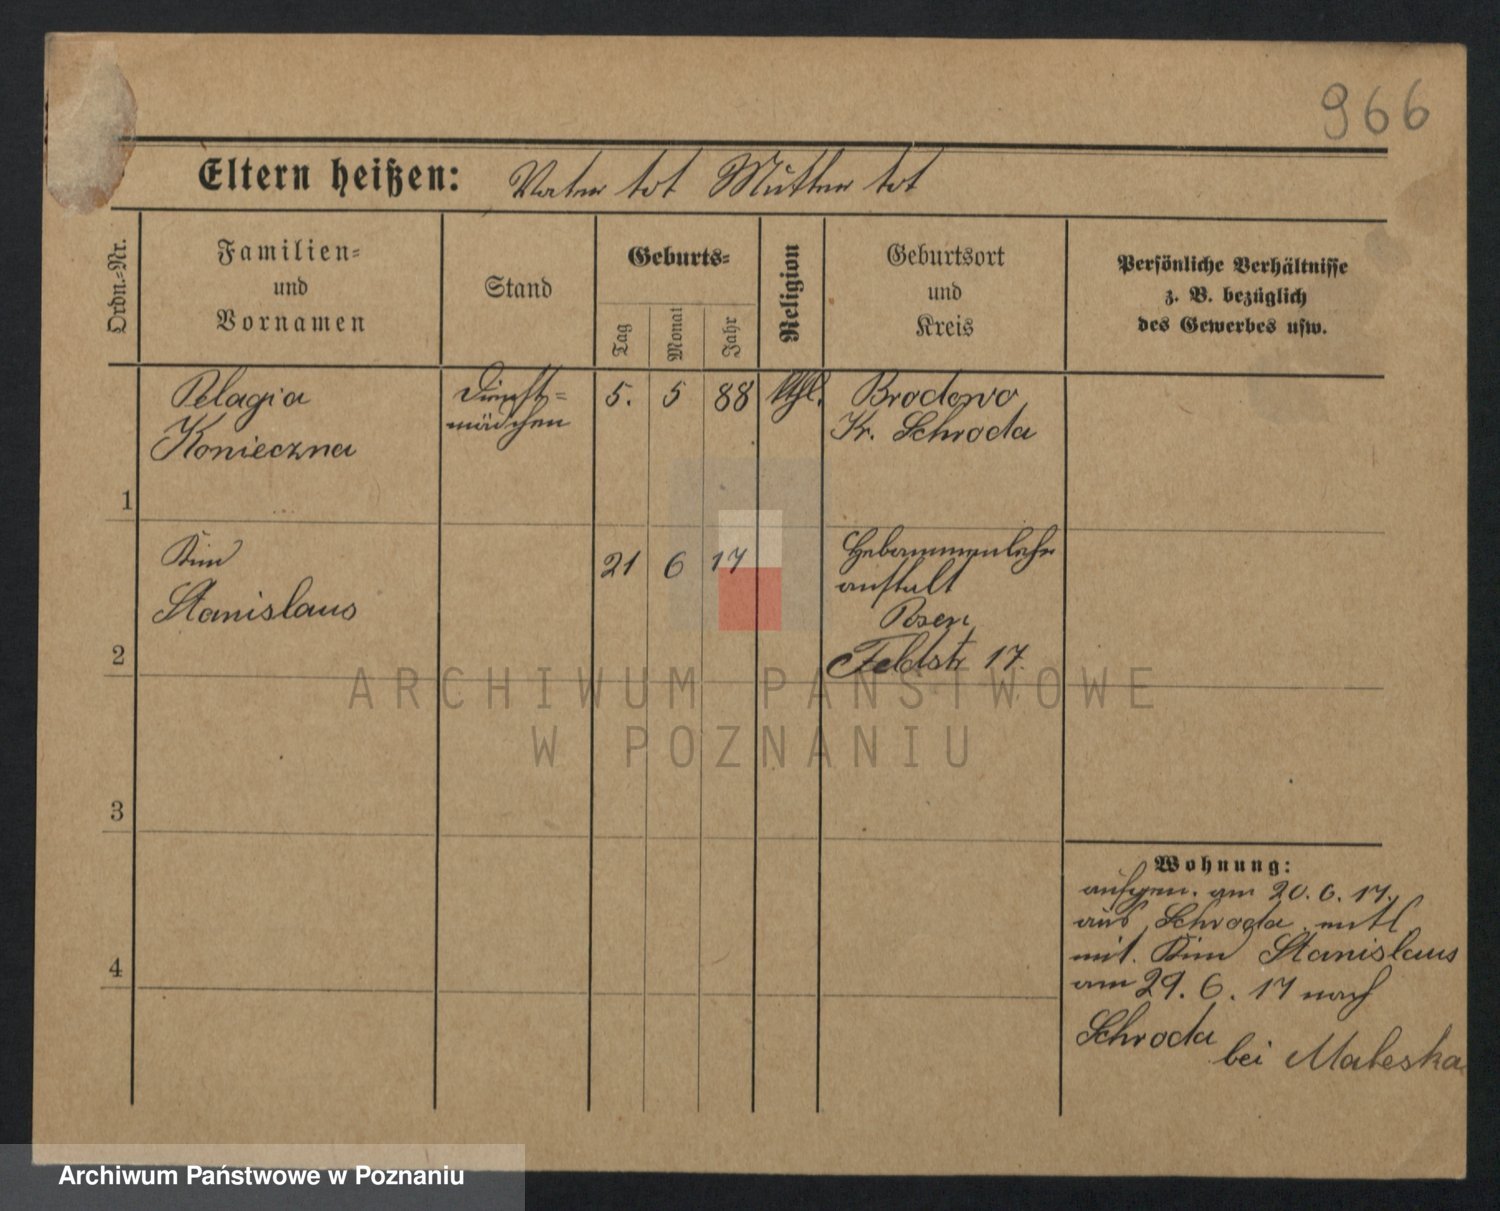 966
Eltern heißen: Vater tot Mutter tot
Ordn.=Nr.
Familien=
und
Vornamen
Stand
Geburts=
Tag
Monat
Jahr
Religion
Geburtsort
und
Kreis
Persönliche Verhältnisse
z. B. bezüglich
des Gewerbes usw.
1
Pelagia
Konieczna
Dienst=
mädchen
5. 5 88
kthl.
Brodowo
Kr. Schroda
2
Kind
Stanislaus
21 6 17
Hebammenlehr
anstalt
Posen
Feldstr 17.
3
4
Wohnung:
aufgen. am 20. 6. 17.
aus Schroda entl
mit. Kind Stanislaus
am 29. 6. 17 nach
Schroda
bei
ARCHIWUM PAŃSTWOWE
W POZNANIU
Archiwum Państwowe w Poznaniu